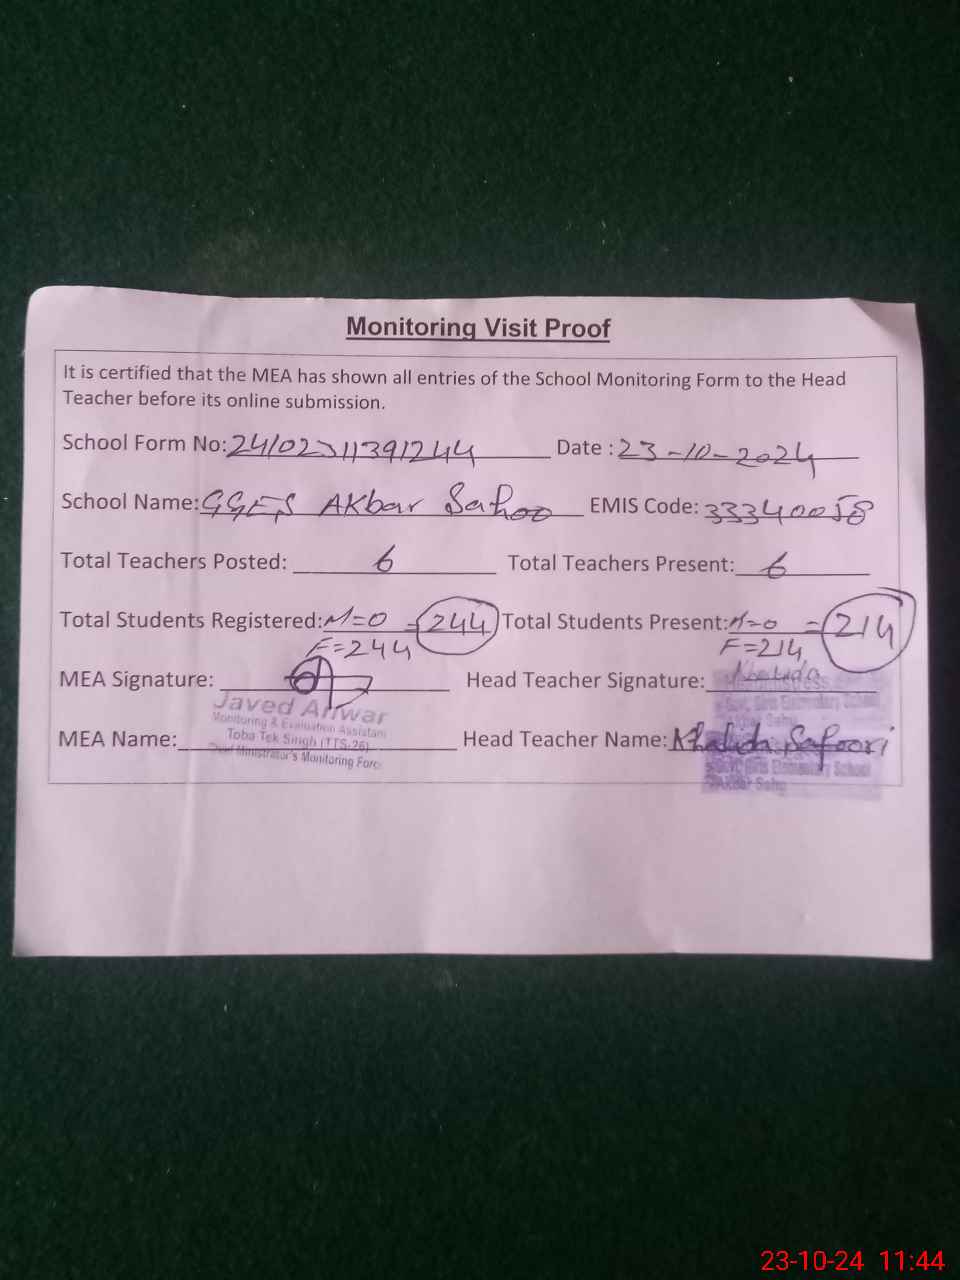 Monitoring Visit Proof
It is certified that the MEA has shown all entries of the School Monitoring Form to the Head
Teacher before its online submission.
School Form No: Date : 23-10-2024
School Name: GGES AKbar Sahoo EMIS Code: 33340058
Total Teachers Posted: 6 Total Teachers Present: 6
Total Students Registered: M=0 = 244 Total Students Present: M=0 = 214
F=244 F=214
MEA Signature: Head Teacher Signature: Khalida
Javed Anwar
Monitoring & Evaluation Assistant
Toba Tek Singh (TTS-26)
Chief Minister's Monitoring Force
MEA Name: Head Teacher Name: Khalida Safoori
Govt. Girls Elementary School
Akbar Sahu
23-10-24 11:44